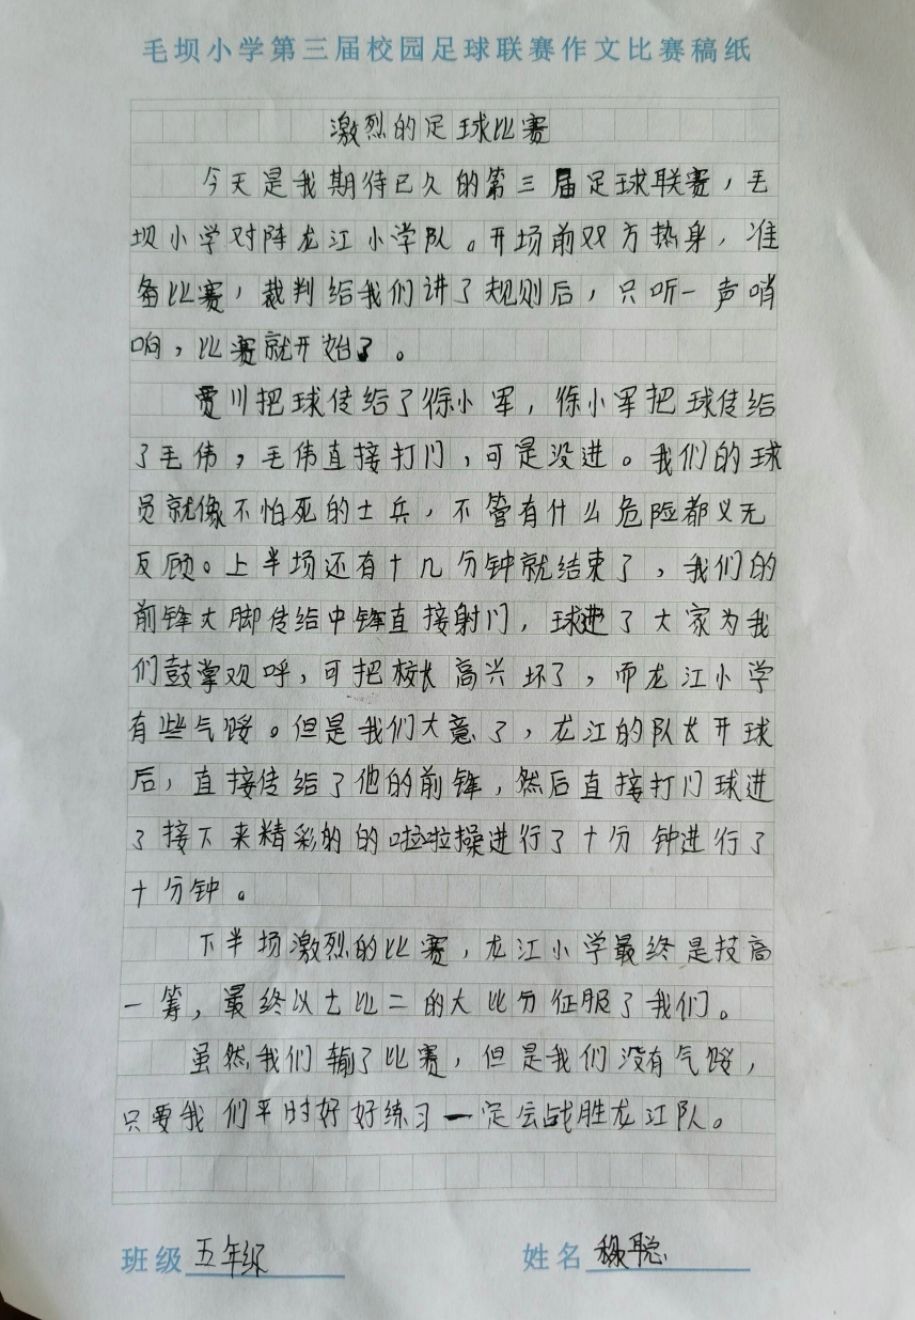 毛坝小学第三届校园足球联赛作文比赛稿纸
激烈的足球比赛
今天是我期待已久的第三届足球联赛，毛
坝小学对阵龙江小学队。开场前双方热身，准
备比赛，裁判给我们讲了规则后，只听一声哨
响，比赛就开始了。
贾川把球传给了徐小军，徐小军把球传给
了毛伟，毛伟直接打门，可是没进。我们的球
员就像不怕死的士兵，不管有什么危险都义无
反顾。上半场还有十几分钟就结束了，我们的
前锋大脚传给中锋直接射门，球进了大家为我
们鼓掌观呼，可把校长高兴坏了，而龙江小学
有些气馁。但是我们大意了，龙江的队长开球
后，直接传给了他的前锋，然后直接打门球进
了接下来精彩的的啦啦操进行了十分钟进行了
十分钟。
下半场激烈的比赛，龙江小学最终是技高
一筹，最终以七比二的大比分征服了我们。
虽然我们输了比赛，但是我们没有气馁，
只要我们平时好好练习一定会战胜龙江队。
班级 五年级 姓名 聪